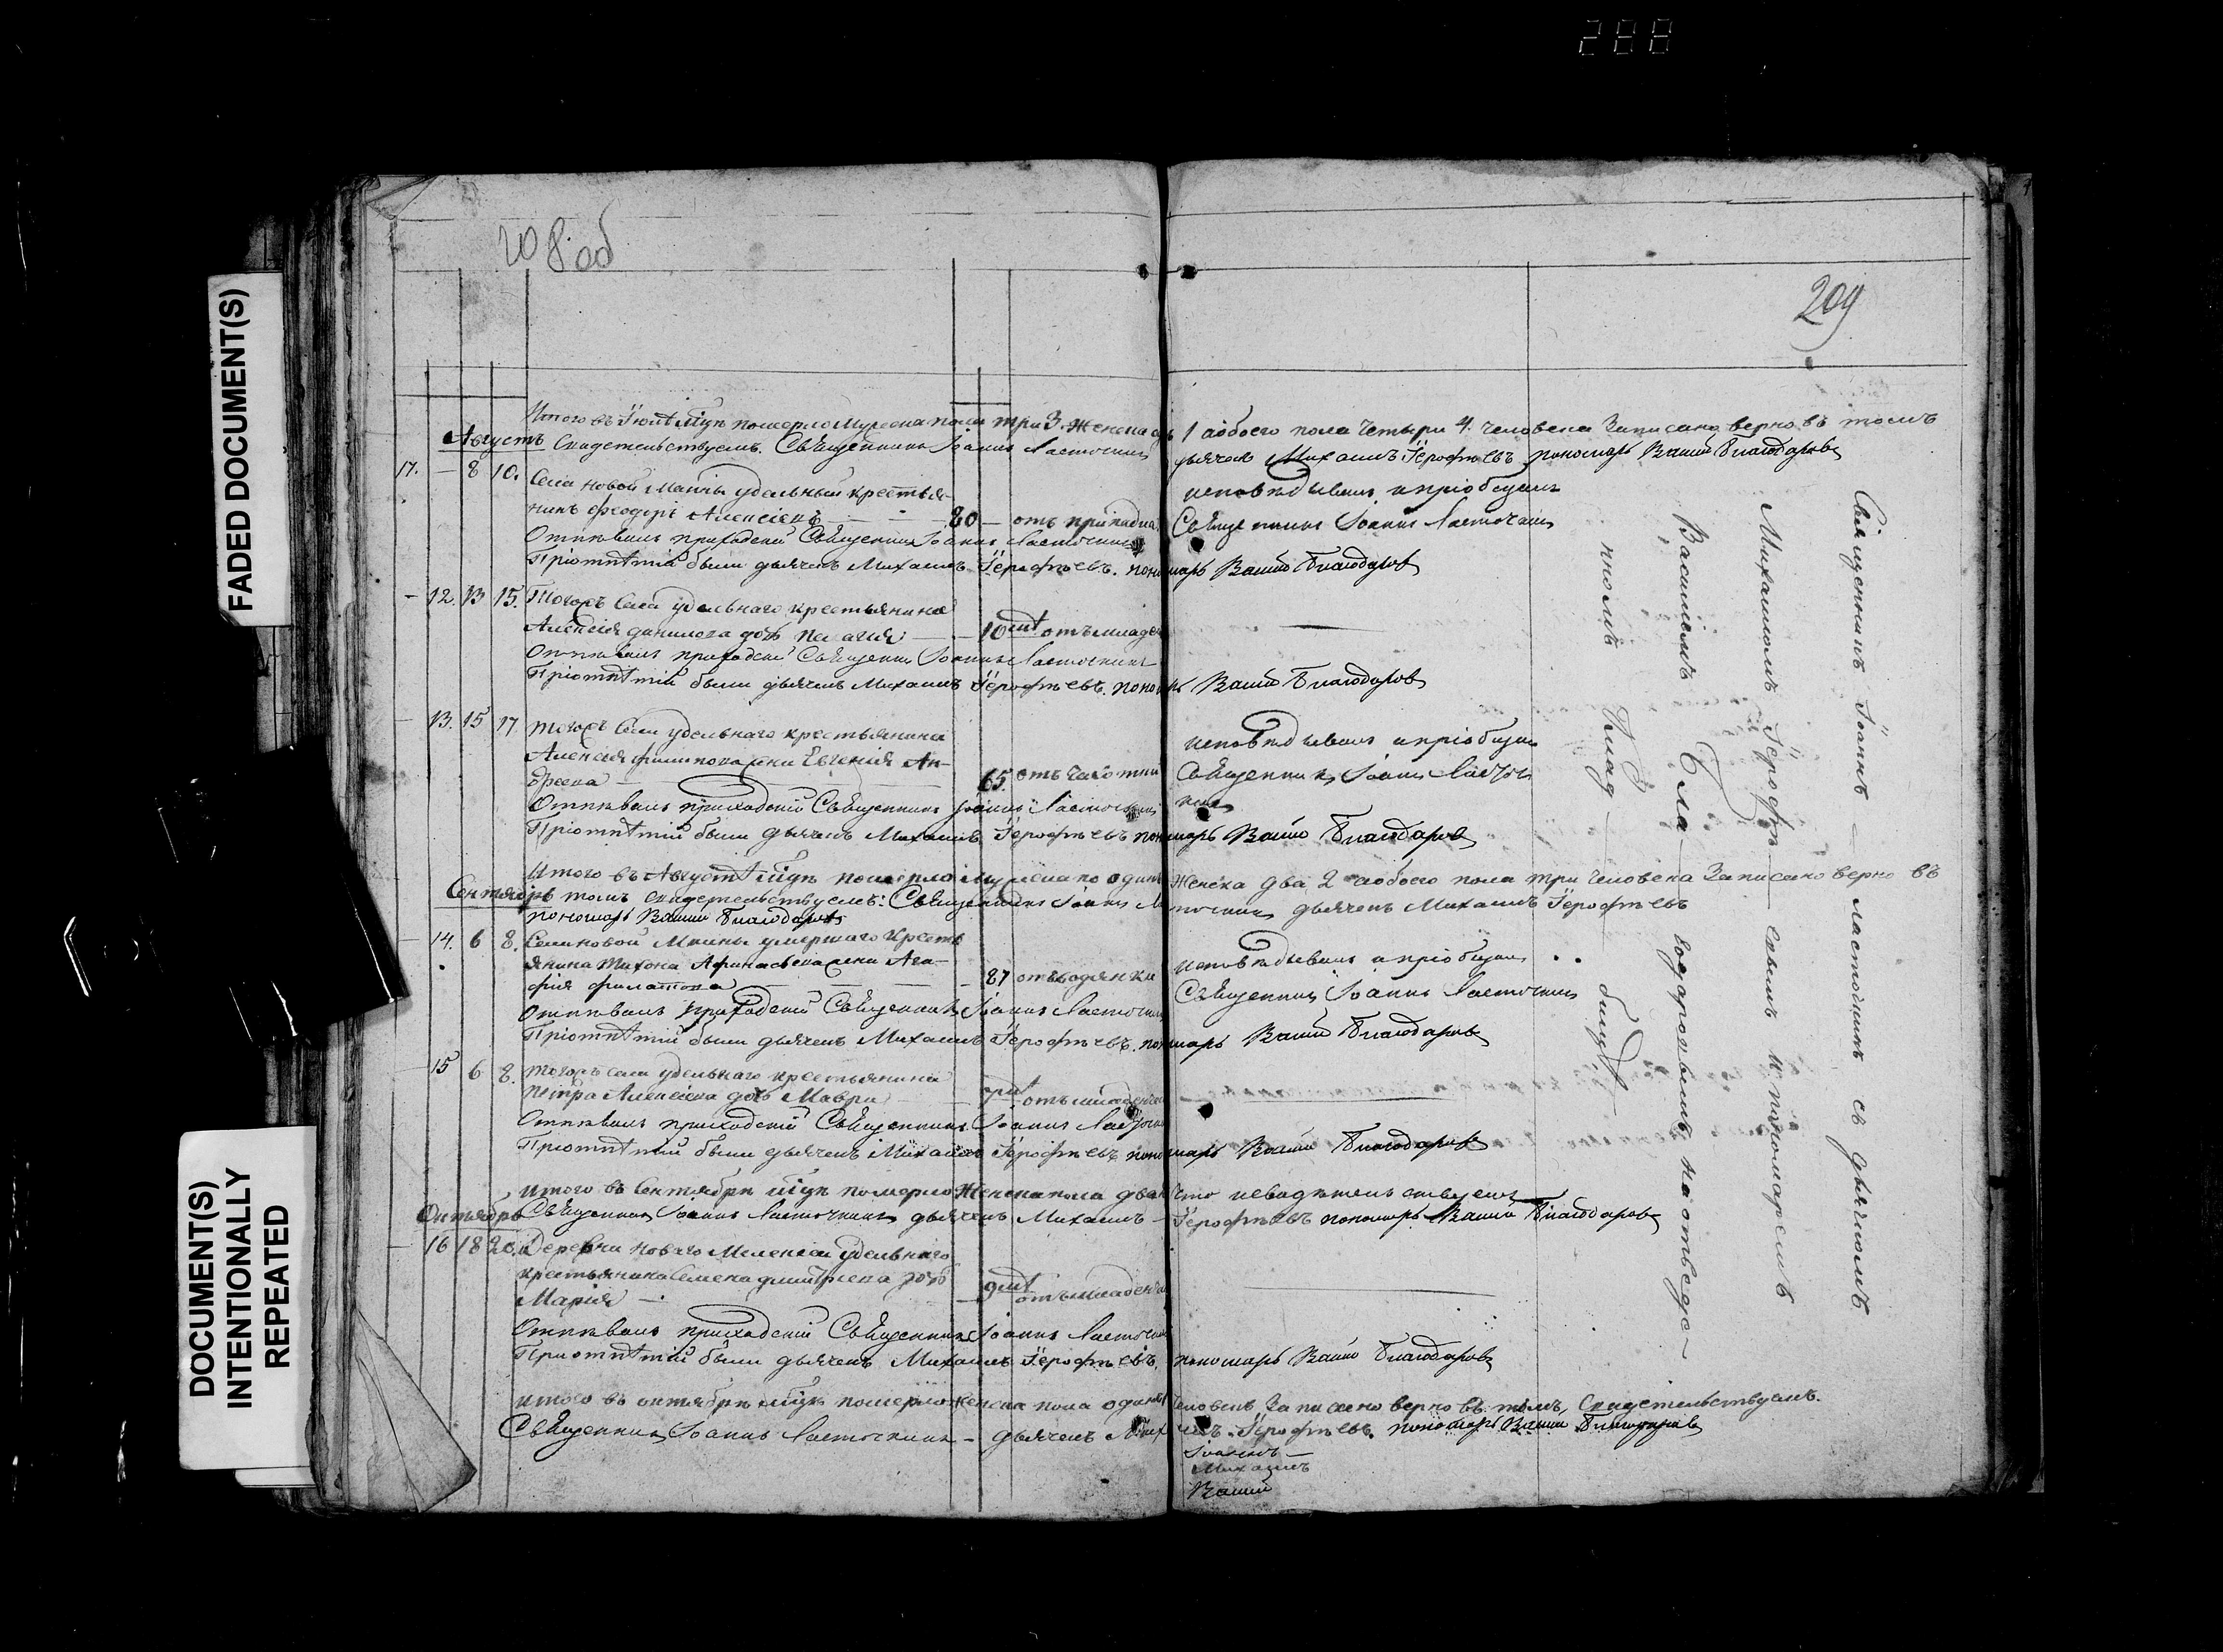 288
208 об
209
FADED DOCUMENT(S)
DOCUMENT(S) INTENTIONALLY REPEATED
Итого въ Іюлѣ м҃цѣ померло Мужеска пола три 3. Женска 1 а обоего пола четыри 4 человека Записано верно въ томъ
Августъ Свидетельствуемъ. Священникъ Іоаннъ Ласточкинъ дьячекъ Михаилъ Іерофѣевъ пономарь Василій Благодаровъ
17. — 8 10. Села Новой Маины удельный крестья-
нинъ Феодоръ Алексіевъ — 80 — отъ припадка
исповѣдывалъ и пріобщалъ
Священникъ Іоаннъ Ласточкинъ
Отпѣвалъ приходскій Священникъ Іоаннъ Ласточкинъ
Пріотпѣтіи были дьячекъ Михаилъ Іерофѣевъ. пономарь Василій Благодаровъ
12. 13 15. Тогожъ Села удельнаго крестьянина
Алексія Данилова дочь Пелагія — 10 отъ младен
Отпѣвалъ приходскій Священникъ Іоаннъ Ласточкинъ
Пріотпѣтіи были дьячекъ Михаилъ Іерофѣевъ. пономарь Василій Благодаровъ
13. 15 17 тогожъ Села удельнаго крестьянина
Алексія Филипова жена Евгенія Ан-
дреева — 65. отъ чахотки
исповѣдывалъ и пріобщалъ
Священникъ Іоаннъ Ласточ
кинъ
Отпѣвалъ приходскій Священникъ Іоаннъ Ласточкинъ
Пріотпѣтіи были дьячекъ Михаилъ Іерофѣевъ пономарь Василій Благодаровъ
Итого въ Августѣ м҃цѣ померло мужеска по одинъ Женска два 2 а обоего пола три человека Записано верно въ
Сентябрь томъ свидетельствуемъ: Священникъ Іоаннъ Ласточкинъ дьячекъ Михаилъ Іерофѣевъ
пономарь Василій Благодаровъ
14. 6 8. Села новой Маины умершаго Кресть
янина Тихона Афанасьева жена Ага-
фия Филатова — 87 отъ водянки
исповѣдывалъ и пріобщалъ
Священникъ Іоаннъ Ласточкинъ
Отпѣвалъ приходскій Священникъ Іоаннъ Ласточкинъ
Пріотпѣтіи были дьячекъ Михаилъ Іерофѣевъ. пономарь Василій Благодаровъ
15 6 8. тогожъ села удельнаго крестьянина
Петра Алексіева дочь Мавра — отъ младенчес
Отпѣвалъ приходскій Священникъ Іоаннъ Ласточкинъ
Пріотпѣтіи были дьячекъ Михаилъ Іерофѣевъ пономарь Василій Благодаровъ
итого въ Сентябрѣ м҃цѣ померло Женска пола два
Октябрь Священникъ Іоаннъ Ласточкинъ дьячекъ Михаилъ Іерофѣевъ пономарь Василій Благодаровъ
16 18 20. Деревни новаго удельнаго
крестьянина Семена Дмитріева дочь
Марія — 9 отъ младенчес
Отпѣвалъ приходскій Священникъ Іоаннъ Ласточкинъ
Приотпѣтіи были дьячекъ Михаилъ Іерофѣевъ. пономарь Василій Благодаровъ
итого въ октябрѣ м҃цѣ померло женска пола одинъ человекъ Записано верно въ томъ, Свидетельствуемъ.
Священникъ Іоаннъ Ласточкинъ — дьячекъ Михаилъ Іерофѣевъ. пономарь Василій Благодаровъ
Михаилъ
Василій
Священникъ Іоаннъ — Ласточкинъ съ дьячкомъ
Михаиломъ Іерофѣ — евымъ и пономаремъ
Василіемъ Бла — годаровымъ на отъведе —
нномъ